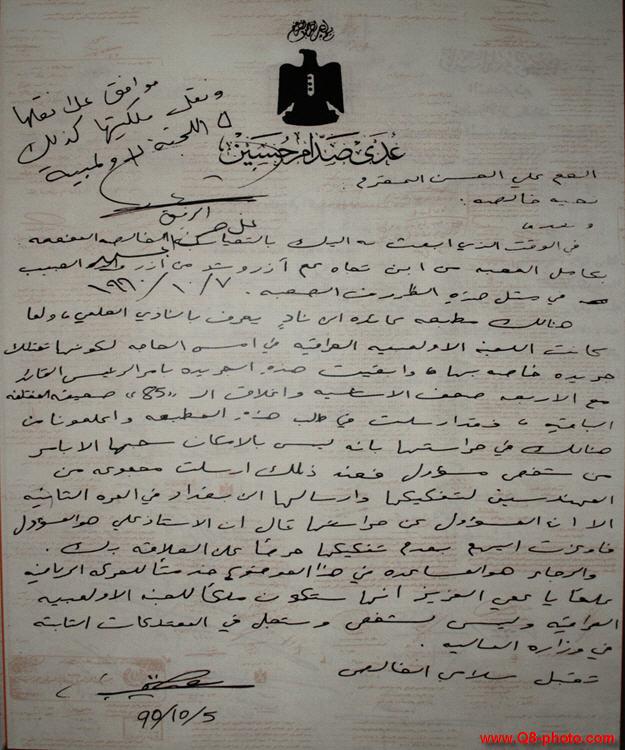 بسم الله الرحمن الرحيم
عدي صدام حسين
موافق على نقلها
ونقل ملكيتها كذلك
اللجنة الاولمبية
العم علي الحسن المحترم
تحية خالصة .
وبعد
في الوقت الذي ابعث به اليك بالتحيات الخالصة
الرفيق
علي حسن المجيد
١٩٩٠/١٠/٧
في مثل هذه الظروف الصعبة .
هنالك مطبعة عائدة الى نادٍ يعرف بالنادي العلمي ، ولما
كانت اللجنة الاولمبية العراقية في امس الحاجة لكونها تمتلك
جريدة خاصة بها ، وابقيت هذه الجريدة بامر الرئيس القائد
مع الاربعة صحف الاساسية واغلاق الـ «85» صحيفة المختلفة
الباقية ، فقد ارسلت في طلب هذه المطبعة واعلمونا من
هنالك في حراستها بانه ليس بالامكان سحبها الا بامر
من شخص مسؤول فعند ذلك ارسلت مجموعة من
المهندسين لتفكيكها وارسالها الى بغداد في المرة الثانية
الا ان المسؤول عن حراستها قال ان الاستاذ علي هو المسؤول
فاوعزت اليهم بعدم تفكيكها حرصاً على العلاقة بك .
والرجاء هو المساعدة في هذا الموضوع خدمتاً للحركة الرياضية
علماً يا عمي العزيز انها ستكون ملكاً للجنة الاولمبية
العراقية وليس لشخص وستسجل في الممتلكات الثابتة
في وزارة المالية .
تقبل سلامي الخالص
90/10/5
www.Q8-photo.com